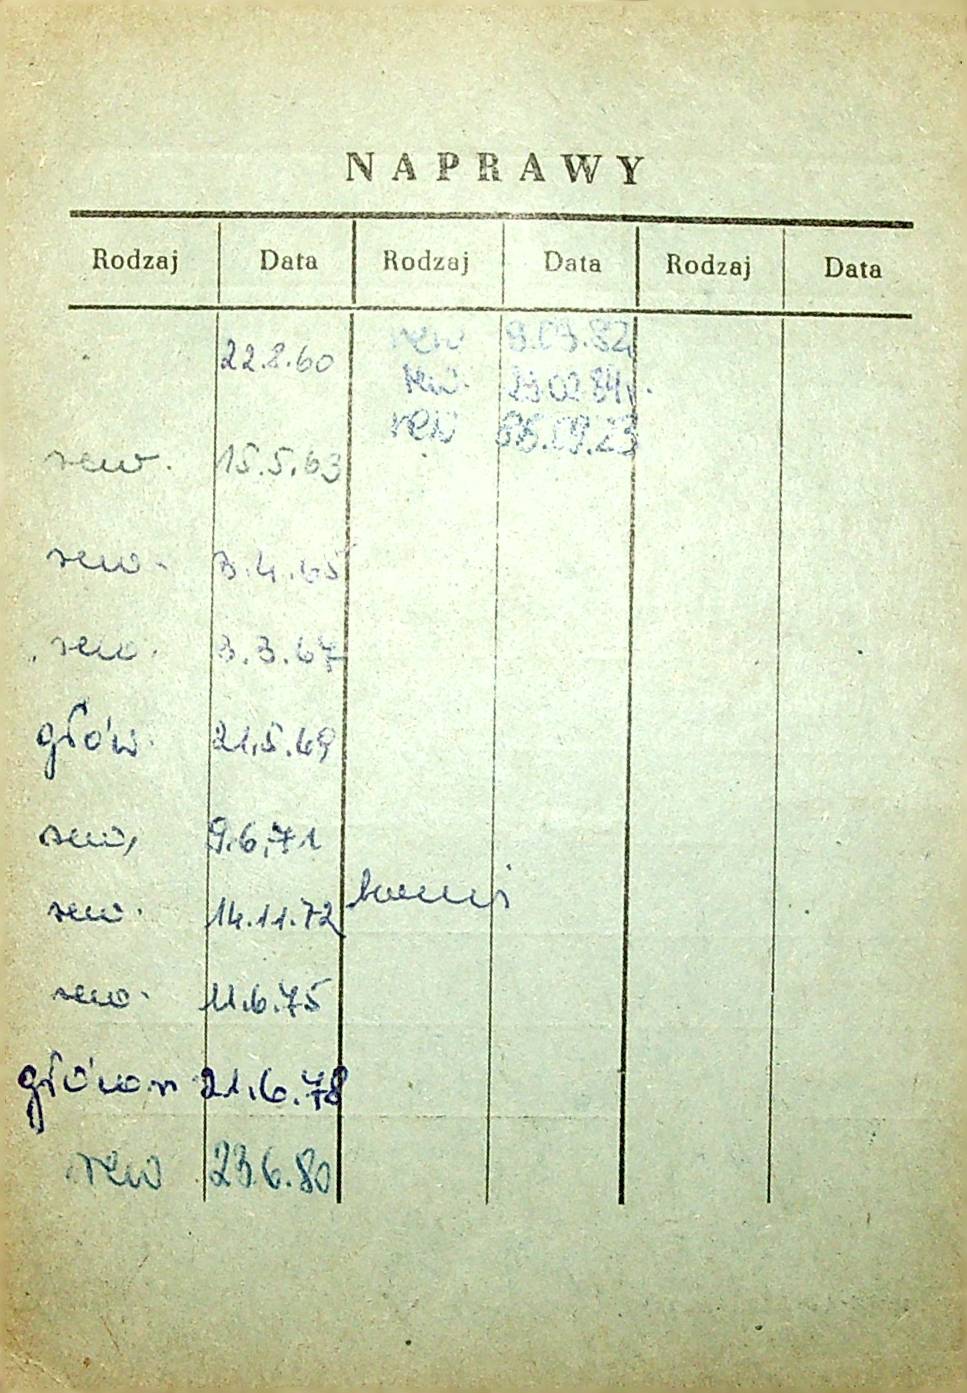 NAPRAWY
Rodzaj Data Rodzaj Data Rodzaj Data
22.8.60
rew. 15.5.63
rew. 3.4.65
rew. 3.3.67
głów. 21.5.69
rew, 9.6.71
rew. 14.11.72
rew. 11.6.75
główn 21.6.78
rew 23.6.80
rew 9.09.82
rew. 29.02.84r.
rew 86.09.23